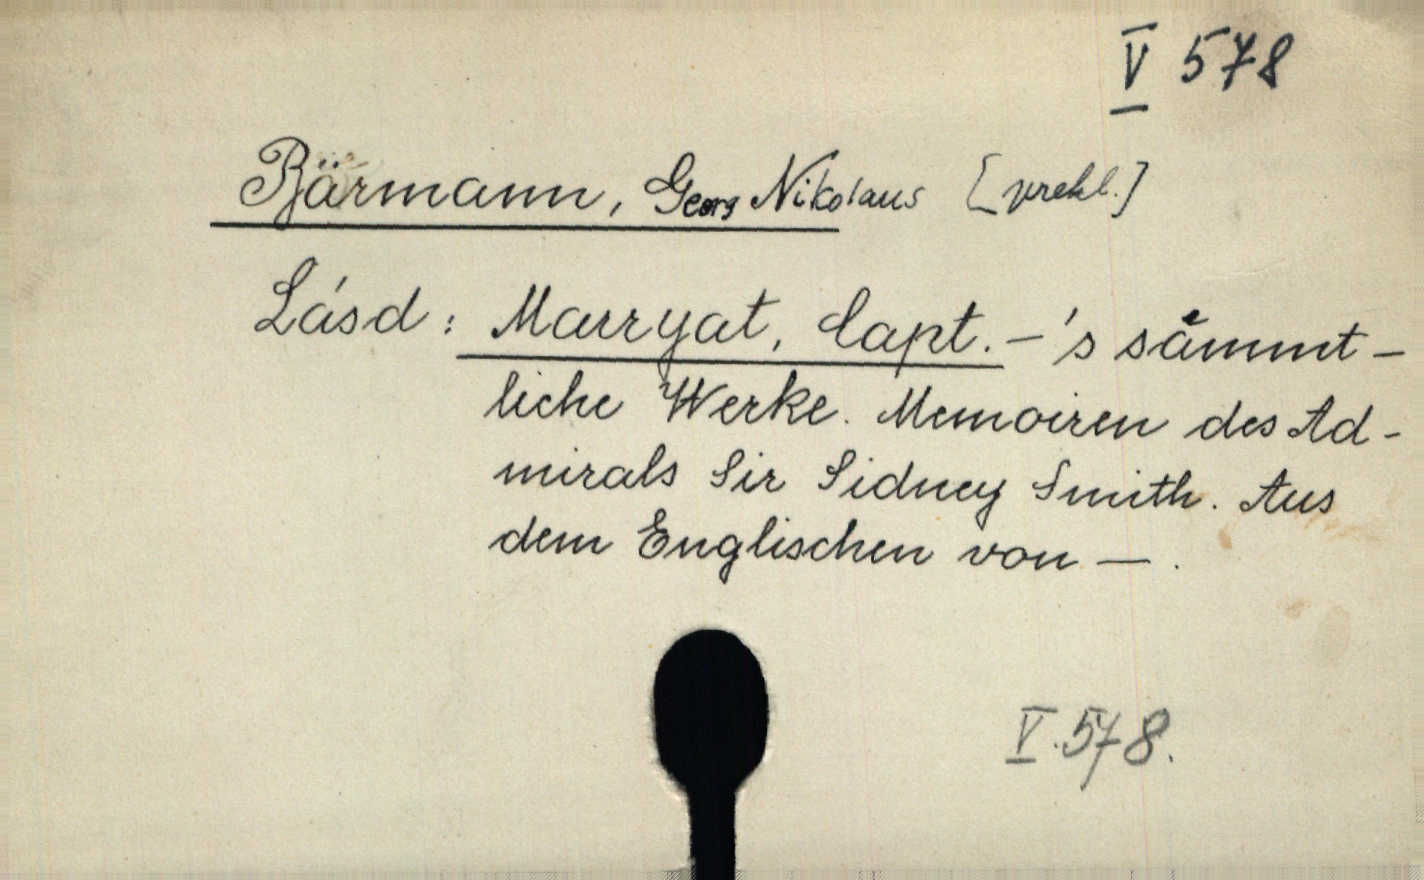 V 578
Bärmann, Georg Nikolaus [prekl.]
Lásd: Marryat, Capt. –'s sämmt–
liche Werke. Memoiren des Ad-
mirals Sir Sidney Smith. Aus
dem Englischen von — .
V. 578.